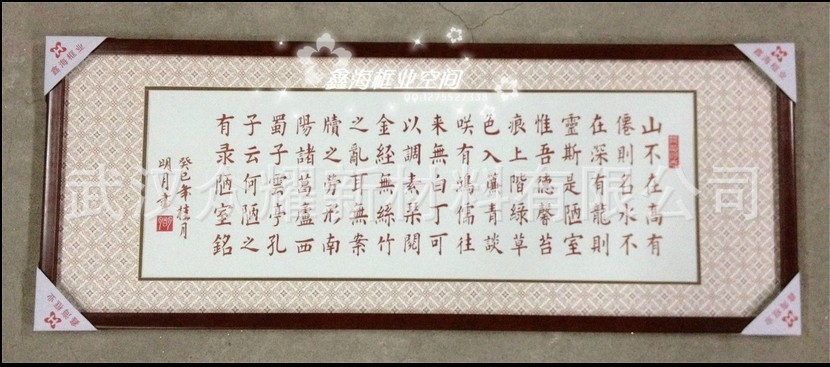 鑫海框业
鑫海框业
鑫海框业空间
山不在高有
僊則名水不
在深有龍則
靈斯是陋室
惟吾德馨苔
痕上階綠草
色入簾青談
咲有鴻儒往
来無白丁可
以調素琹閱
金經無絲竹
之亂耳無案
牘之勞形南
陽諸葛廬西
蜀子雲亭孔
子云何陋之
有录陋室銘
癸巳年桂月
明月書
武汉众耀新材料有限公司
鑫海框业
鑫海框业